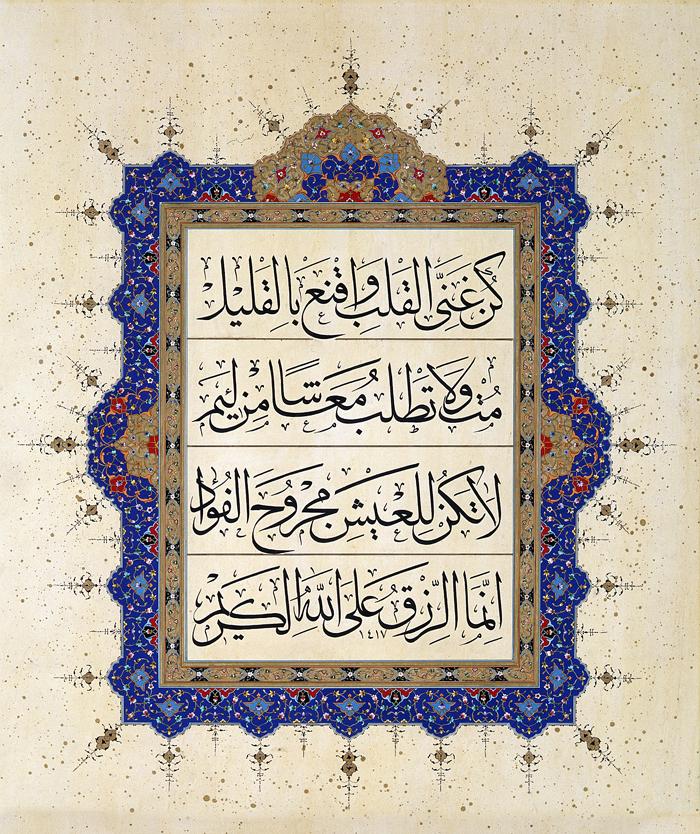 كُنْ غَنِيَّ القَلبِ وَاقنَع بِالقَلِيل
مُت وَلَا تَطلُب مَعَاشًا مِن لَئِيم
لَا تَكُن لِلعَيشِ مَجرُوحَ الفُؤاد
اِنَّمَا الرِّزقُ عَلَى اللهِ الكَرِيم
١٤١٧